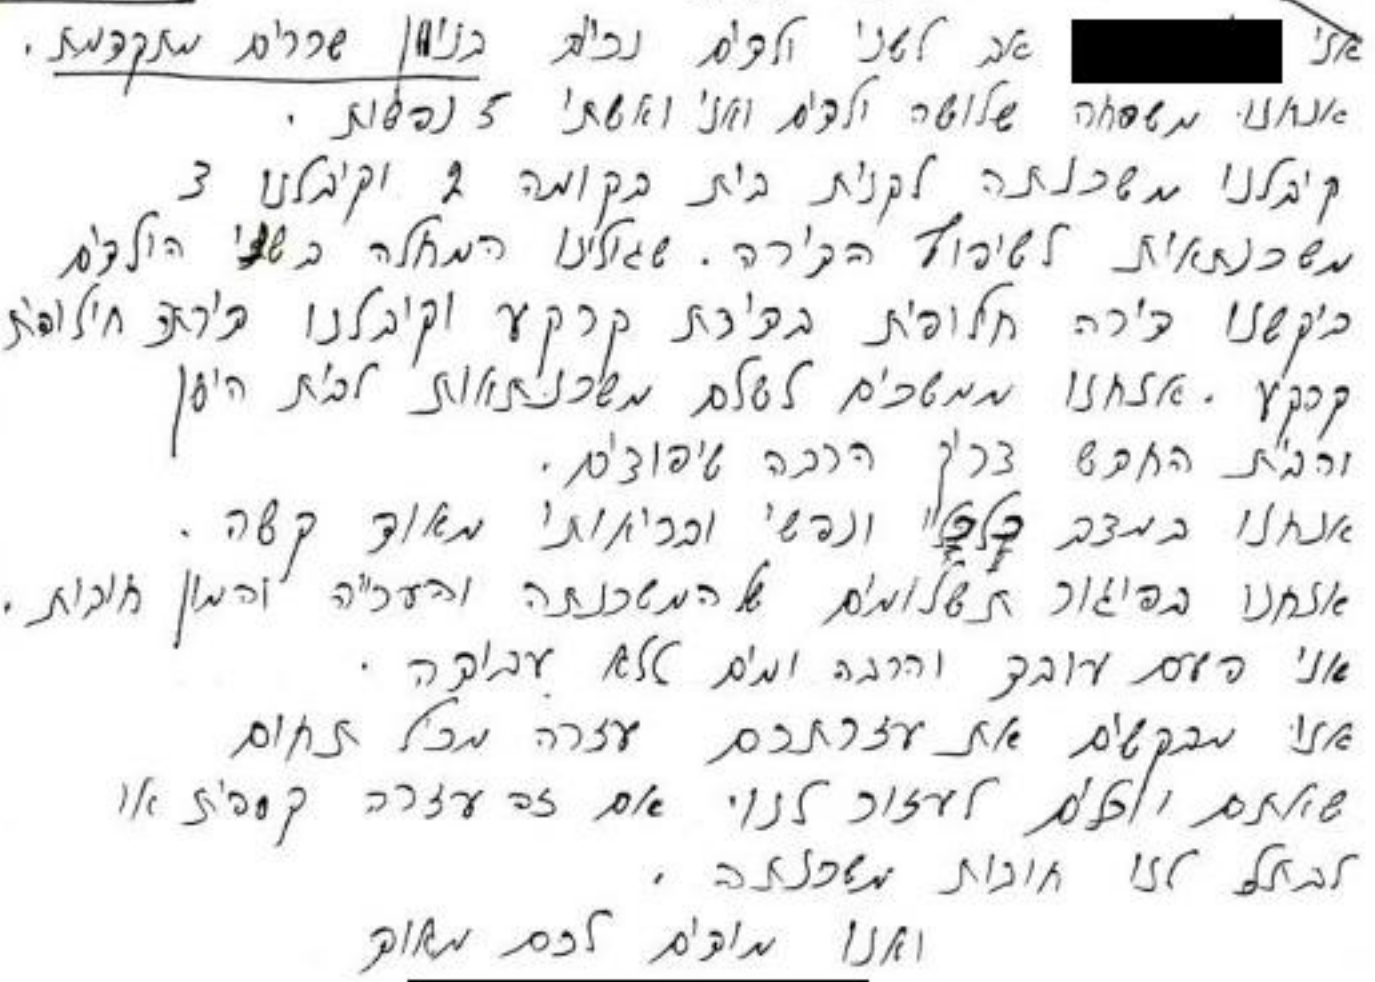 אני אב לשני ילדים נכים בניוון שרירים מתקדמת.
אנחנו משפחה שלושה ילדים ואני ואשתי 5 נפשות.
קיבלנו משכנתה לקנית בית בקומה 2 וקיבלנו 3
משכנתאות לשיפוץ הדירה. שגילינו המחלה בשני הילדים
ביקשנו דירה חלופית בדירת קרקע וקיבלנו דירת חילופית
קרקע. אנחנו ממשכים לשלם משכנתאות לבית הישן
והבית החדש צריך הרבה שיפוצים.
אנחנו במצב כלכלי ונפשי ובריאותי מאוד קשה.
אנחנו בפיגור תשלומים של המשכנתה והעריה והמון חובות.
אני פעם עובד והרבה ימים ללא עבודה.
אני מבקשים את עזרתכם עזרה מכל תחום
שאתם יכולים לעזור לנו אם זה עזרה קספית או
לבטל לנו חובות משכנתה.
ואנו מודים לכם מאוד